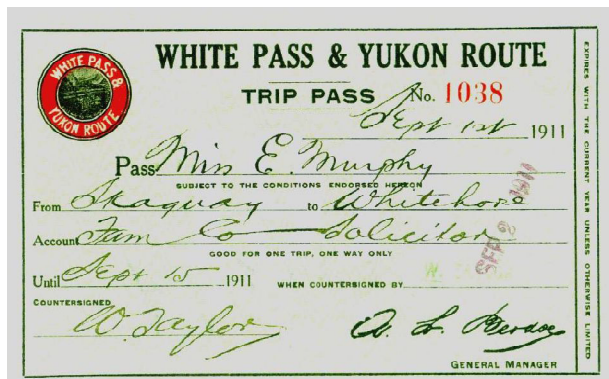 WHITE PASS & YUKON ROUTE
WHITE PASS & YUKON ROUTE
TRIP PASS No. 1038
Sept 1st 1911
Pass Miss E. Murphy
SUBJECT TO THE CONDITIONS ENDORSED HEREON
From Skaguay to Whitehorse
Account Fam Co Solicitor
GOOD FOR ONE TRIP, ONE WAY ONLY
SEP 2 1911
Until Sept 15 1911 WHEN COUNTERSIGNED BY
COUNTERSIGNED
W. Taylor
GENERAL MANAGER
EXPIRES WITH THE CURRENT YEAR UNLESS OTHERWISE LIMITED